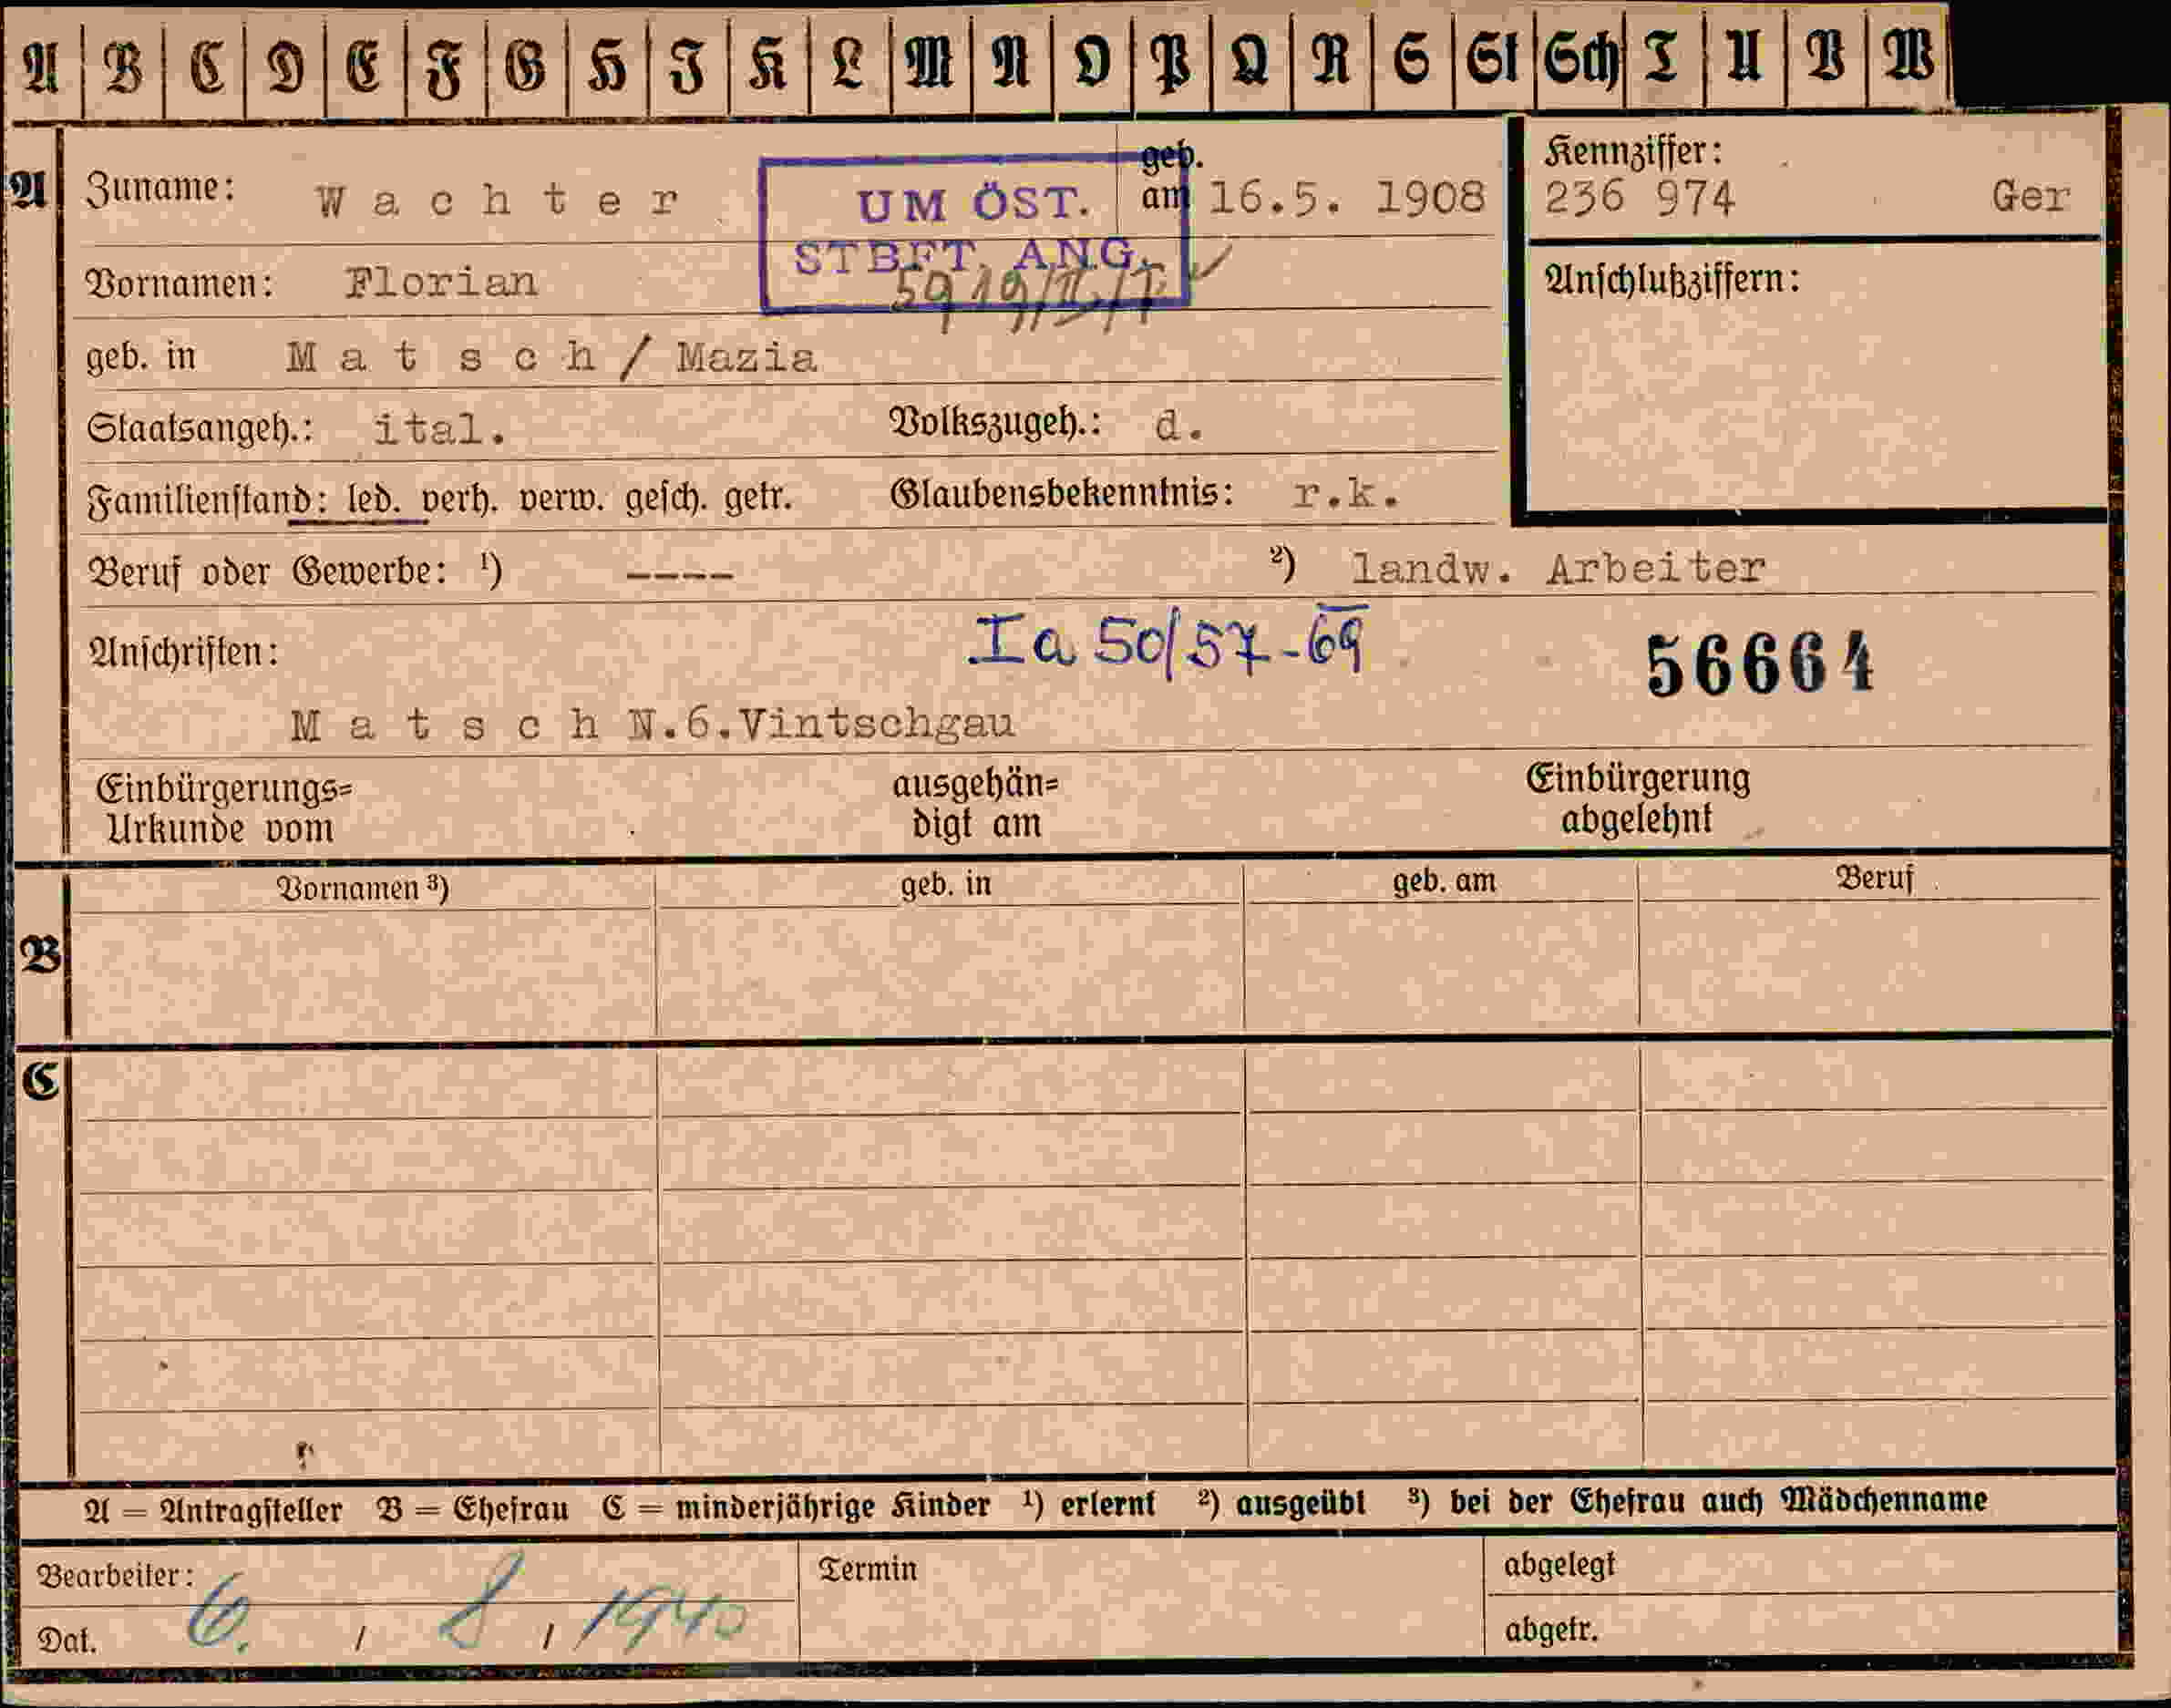 A B C D E F G H I K L M N O P Q R S St Sch T U V W
A Zuname: Wachter geb. am 16.5. 1908 Kennziffer: 236 974 Ger
UM ÖST.
STBFT. ANG.
Vornamen: Florian Anschlußziffern:
geb. in Matsch / Mazia
Staatsangeh.: ital. Volkszugeh.: d.
Familienstand: led. verh. verw. gesch. getr. Glaubensbekenntnis: r.k.
Beruf oder Gewerbe: ¹) ---- ²) landw. Arbeiter
Anschriften: Ia 50/57-69 56664
Matsch N.6.Vintschgau
Einbürgerungs= ausgehän= Einbürgerung
Urkunde vom digt am abgelehnt
Vornamen ³) geb. in geb. am Beruf
B
C
A = Antragsteller B = Ehefrau C = minderjährige Kinder ¹) erlernt ²) ausgeübt ³) bei der Ehefrau auch Mädchenname
Bearbeiter: Termin abgelegt
Dat. 6. / 8 / 1940 abgetr.